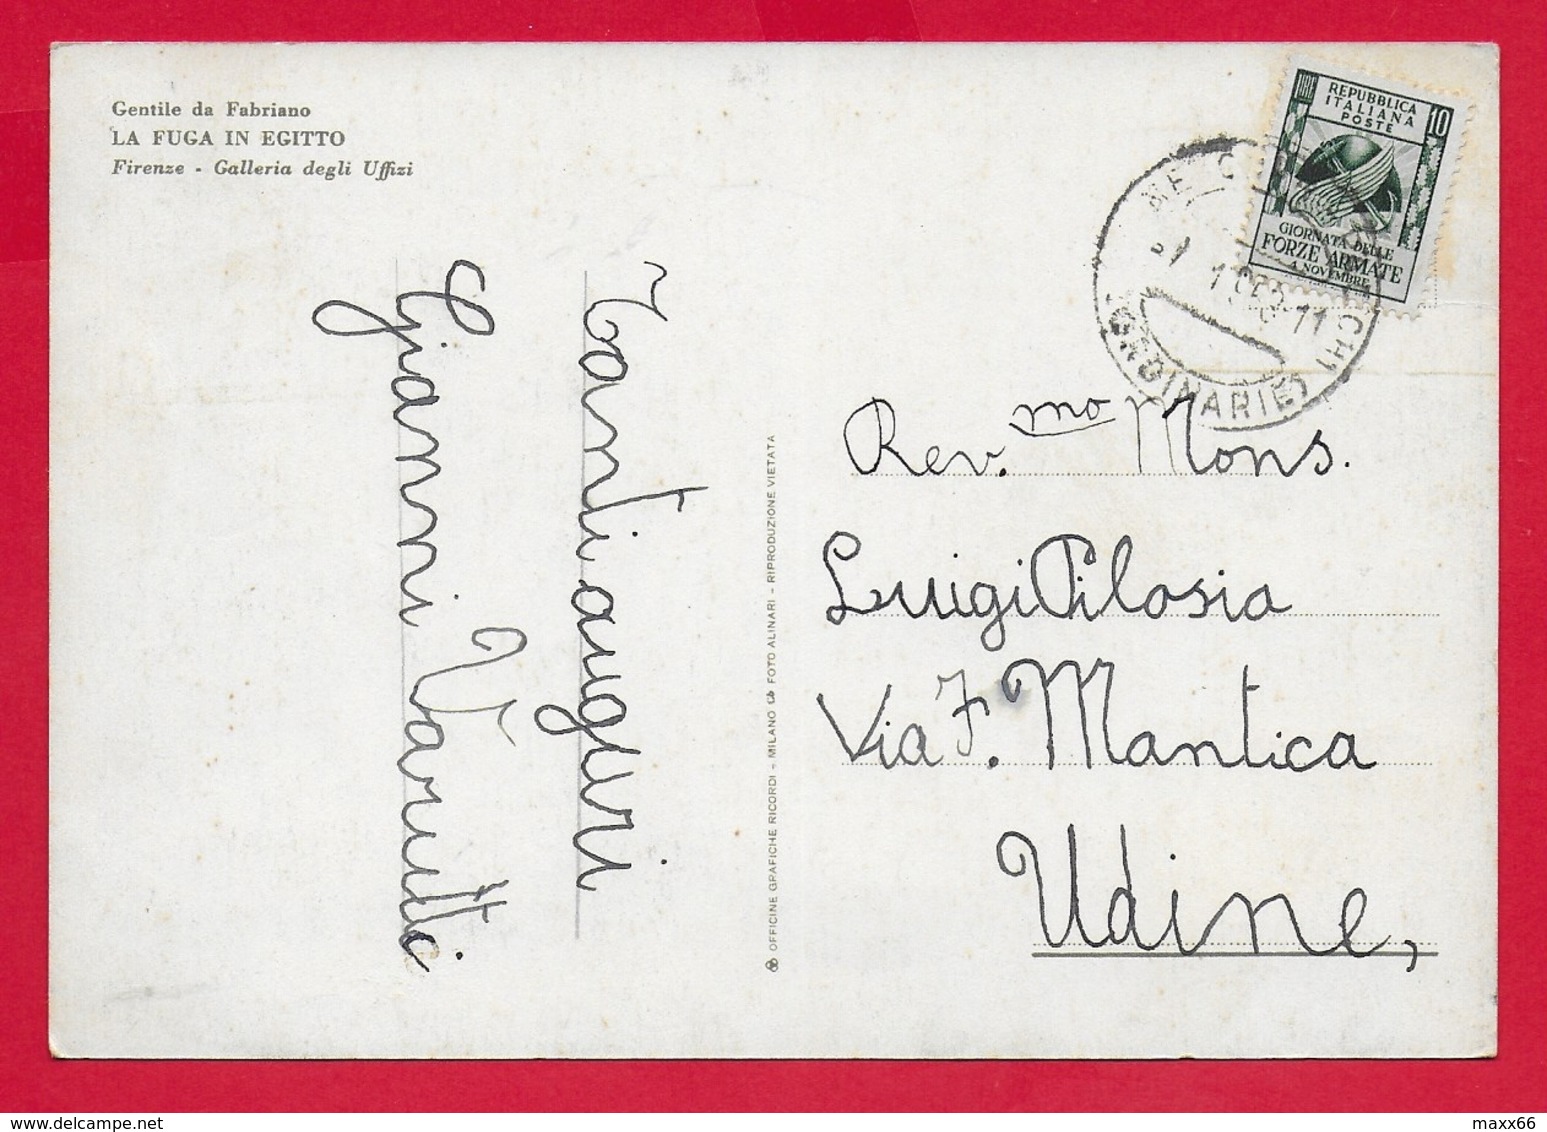 Gentile da Fabriano
LA FUGA IN EGITTO
Firenze - Galleria degli Uffizi
Tanti auguri
Gianni Varutti
OFFICINE GRAFICHE RICORDI - MILANO FOTO ALINARI - RIPRODUZIONE VIETATA
LIRE 10
REPUBBLICA
ITALIANA
POSTE
GIORNATA DELLE
FORZE ARMATE
4 NOVEMBRE
Rev.mo Mons.
Luigi Pilosio
Via F. Mantica
Udine,
maxx66